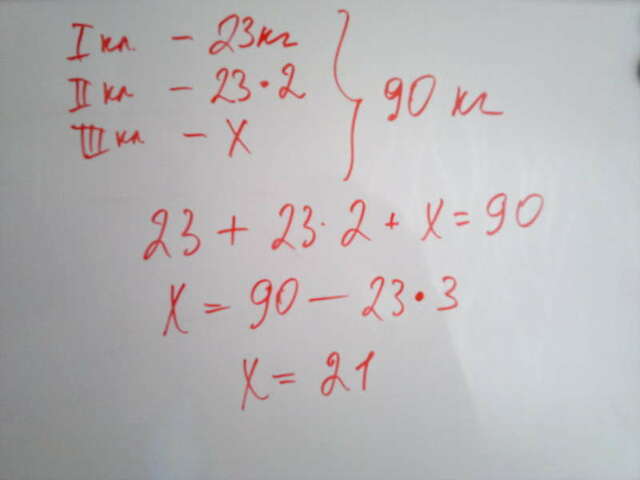 I кл. - 23 кг
II кл - 23·2
III кл - X
90 кг
23 + 23·2 + X = 90
X = 90 - 23·3
X = 21